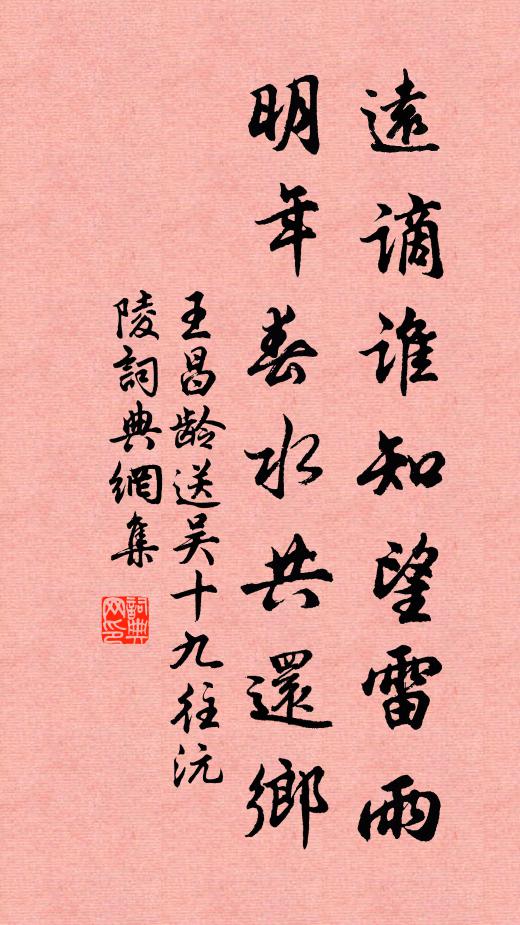 遠謫誰知望雷雨
明年春水共還鄉
王昌齡送吴十九往沅
陵詞典網集
詞典
网印